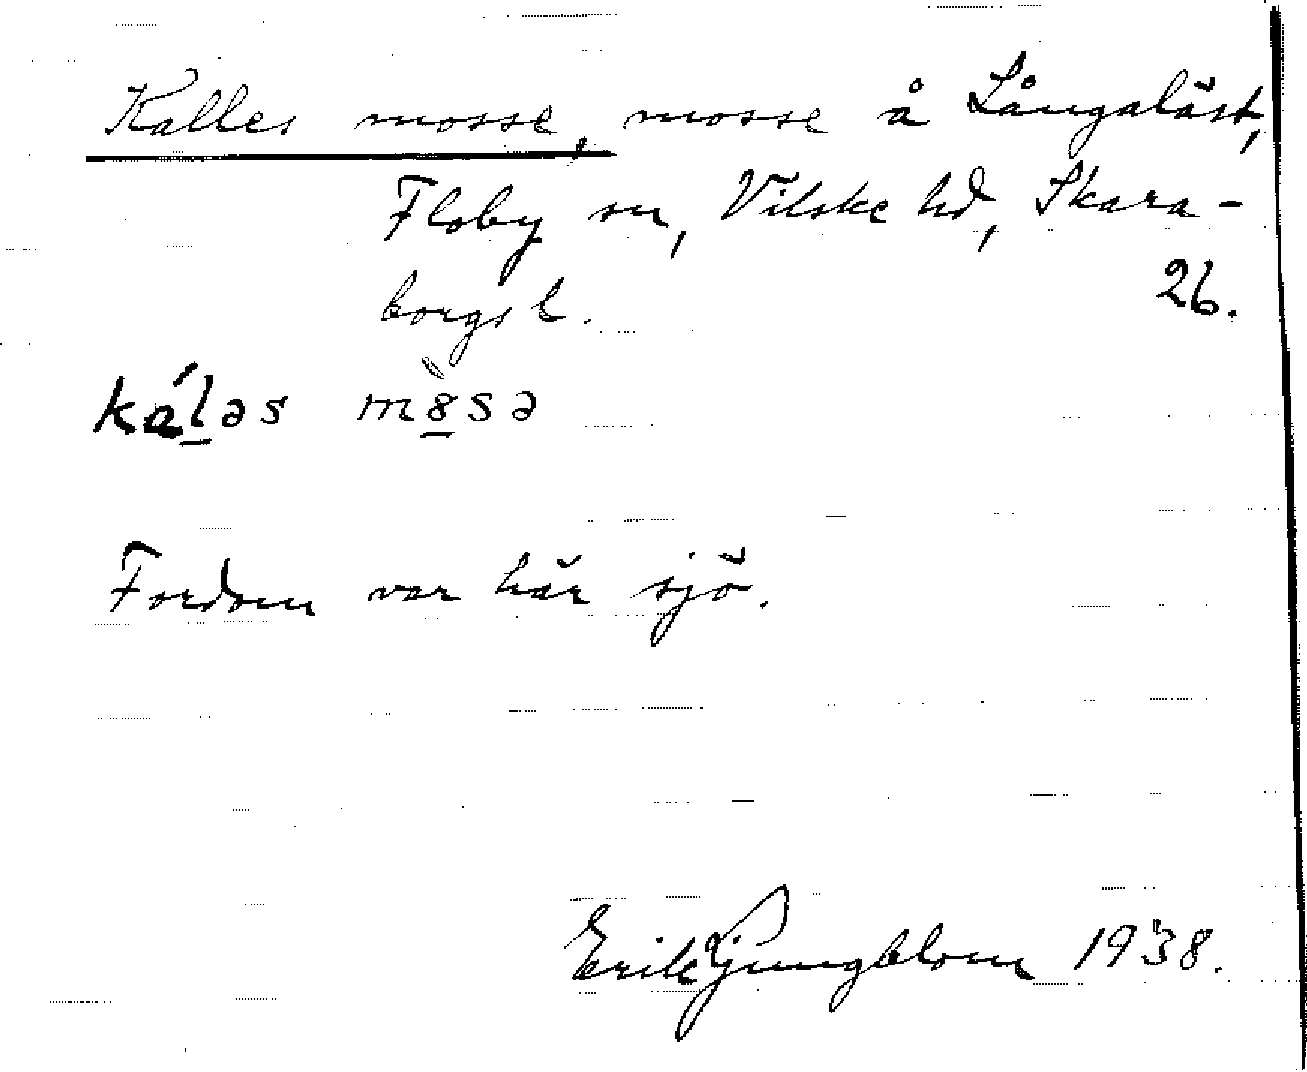 Kalles mosse, mosse å Långaläst,
Floby sn, Vilske hd, Skara-
borgs l.
26.
káləs m8̀sə
Fordom var här sjö.
Erik Ljungblom 1938.